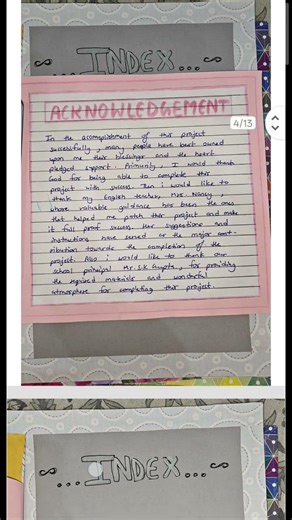 ...INDEX...
ACKNOWLEDGEMENT
4/13
In the accomplishment of this project
successfully, many people have best owned
upon me their blessings and the heart
pledged support. Primarily, I would thank
God for being able to complete this
project with success. Then i would like to
thank my English teacher, Mrs. Nancy,
whose valuable guidance has been the ones
that helped me patch this project and make
it full proof success. Her suggestions and
instructions have served as the major cont-
ribution towards the completion of the
project. Also i would like to thank our
school principal Mr. S.K Gupta, for providing
the required materials and wonderful
atmosphere for completing this project.
...INDEX...